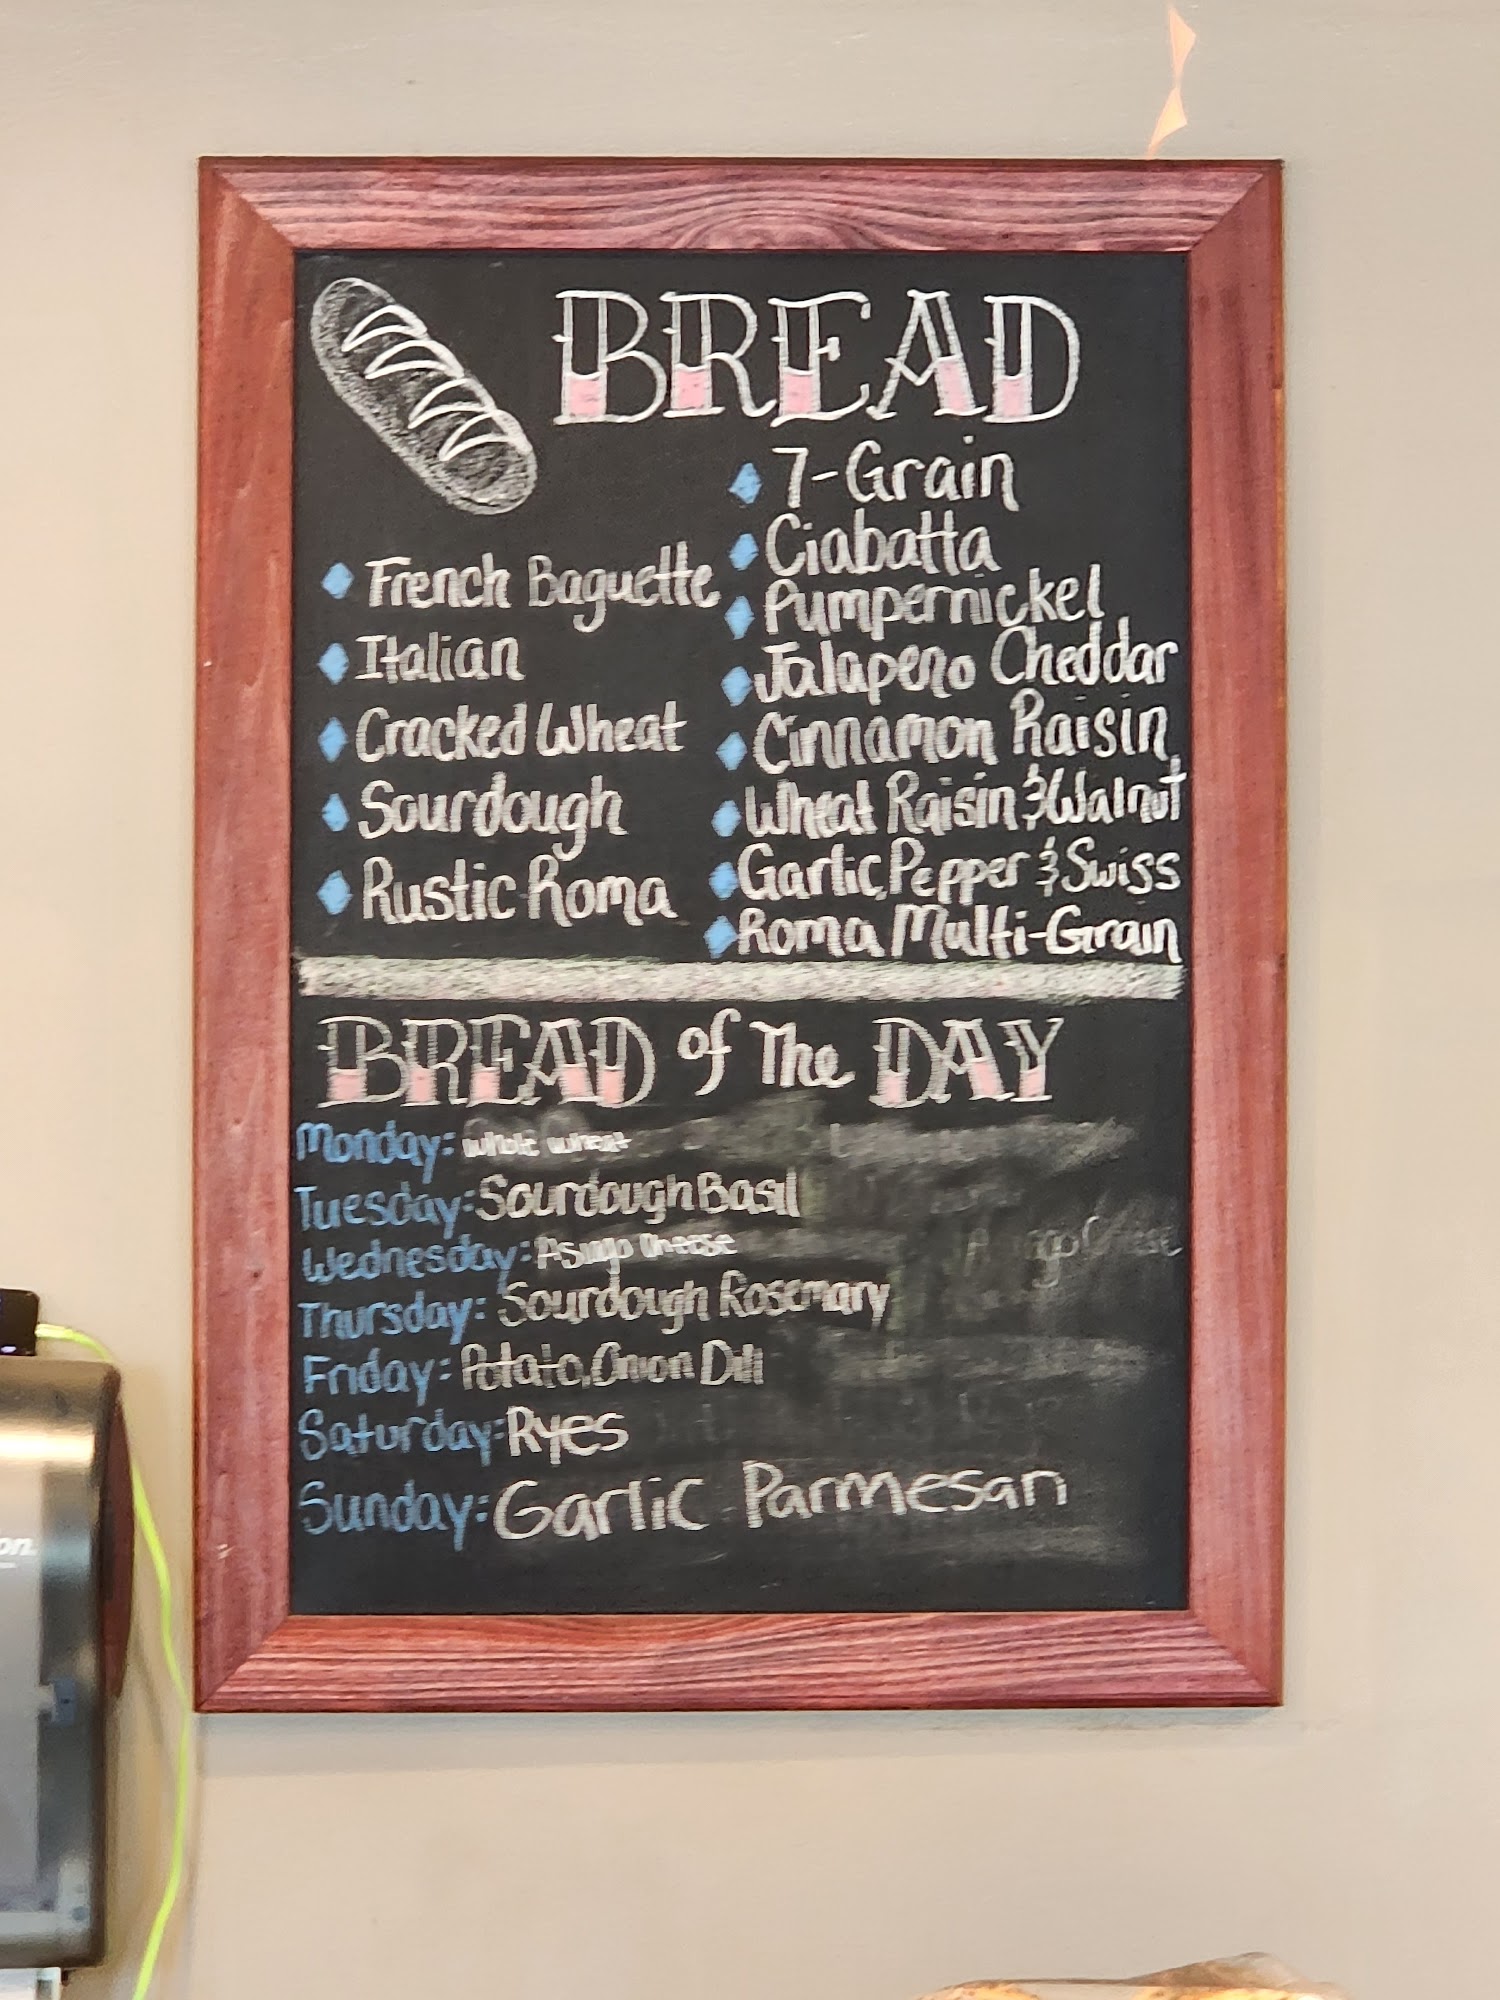 BREAD
French Baguette
Italian
Cracked Wheat
Sourdough
Rustic Roma
7-Grain
Ciabatta
Pumpernickel
Jalapeno Cheddar
Cinnamon Raisin
Wheat Raisin & Walnut
Garlic, Pepper & Swiss
Roma Multi-Grain
BREAD of The DAY
Monday: Whole Wheat
Tuesday: Sourdough Basil
Wednesday: Asiago Cheese
Thursday: Sourdough Rosemary
Friday: Potato, Onion Dill
Saturday: Ryes
Sunday: Garlic Parmesan